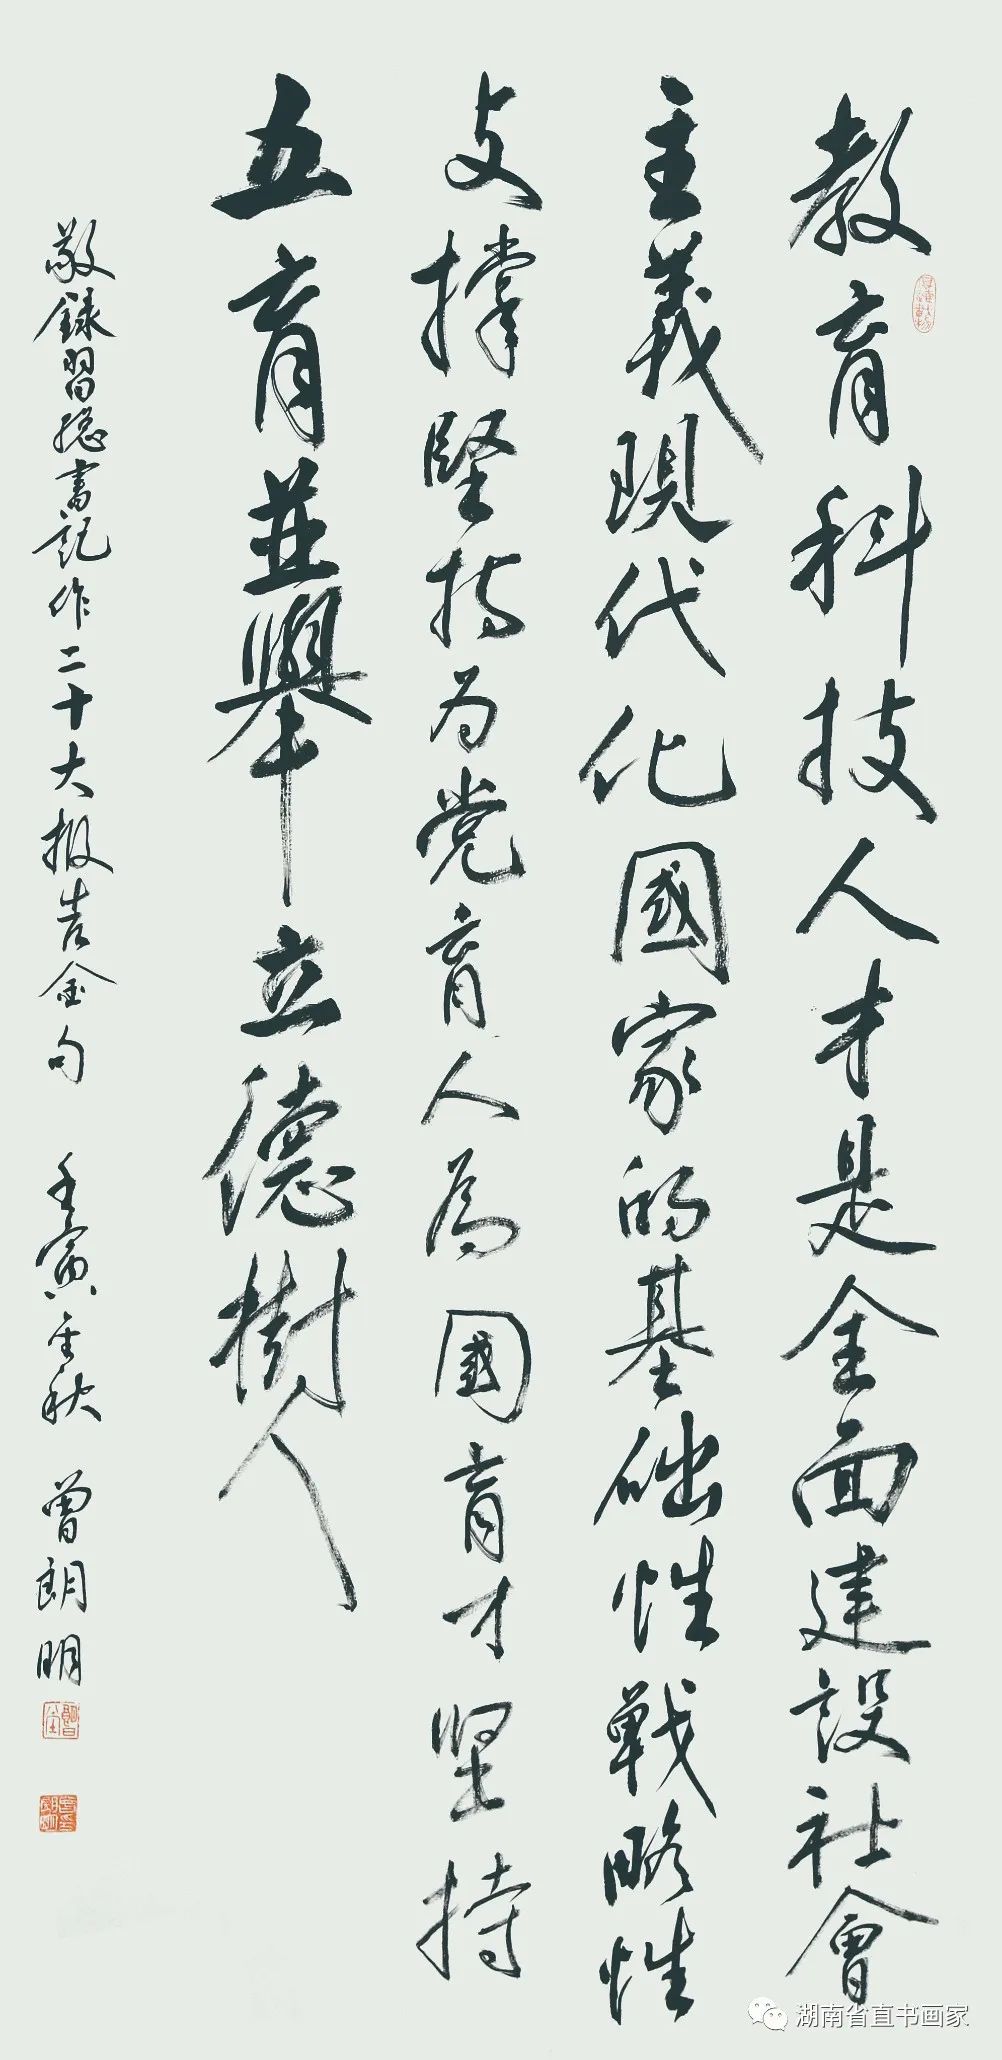 教育科技人才是全面建设社會
主義現代化國家的基础性戰略性
支撑堅持为党育人為國育才坚持
五育並舉立德樹人
敬録習總書記作二十大报告金句 壬寅金秋 曾朗明
厚德載物
湖南省直书画家